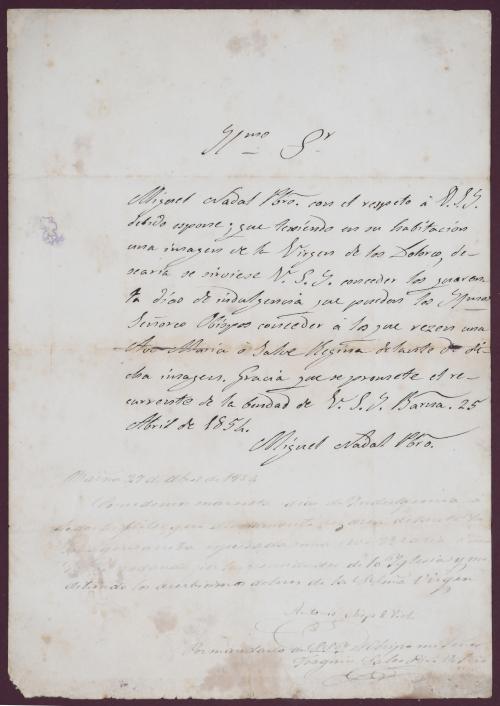 Yltmo Sr
Miguel Nadal Pbro. con el respeto á V.S.Y.
debido espone; que teniendo en su habitacion
una imagen de la Virgen de los Dolores, de-
searia se sirviese V.S.Y. conceder los quaren-
ta dias de indulgencia que pueden los Yltmos
Señores Obispos conceder á los que rezen una
Ave Maria ó Salve Regina delante de di-
cha imagen. Gracia que se promete el re-
currente de la bondad de V.S.Y. Barna. 25
Abril de 1854.
Miguel Nadal Pbro.
27 de Abril de 1854
Concedemos cuarenta dias de Indulgencia á
delante
una Ave Maria
de la Sta Yglesia y me-
ditando los acerbisimos dolores de la Virgen
Antonio Obispo de Vich
Por mandado de S.S.Y. el Obispo mi Señor
Joaquin